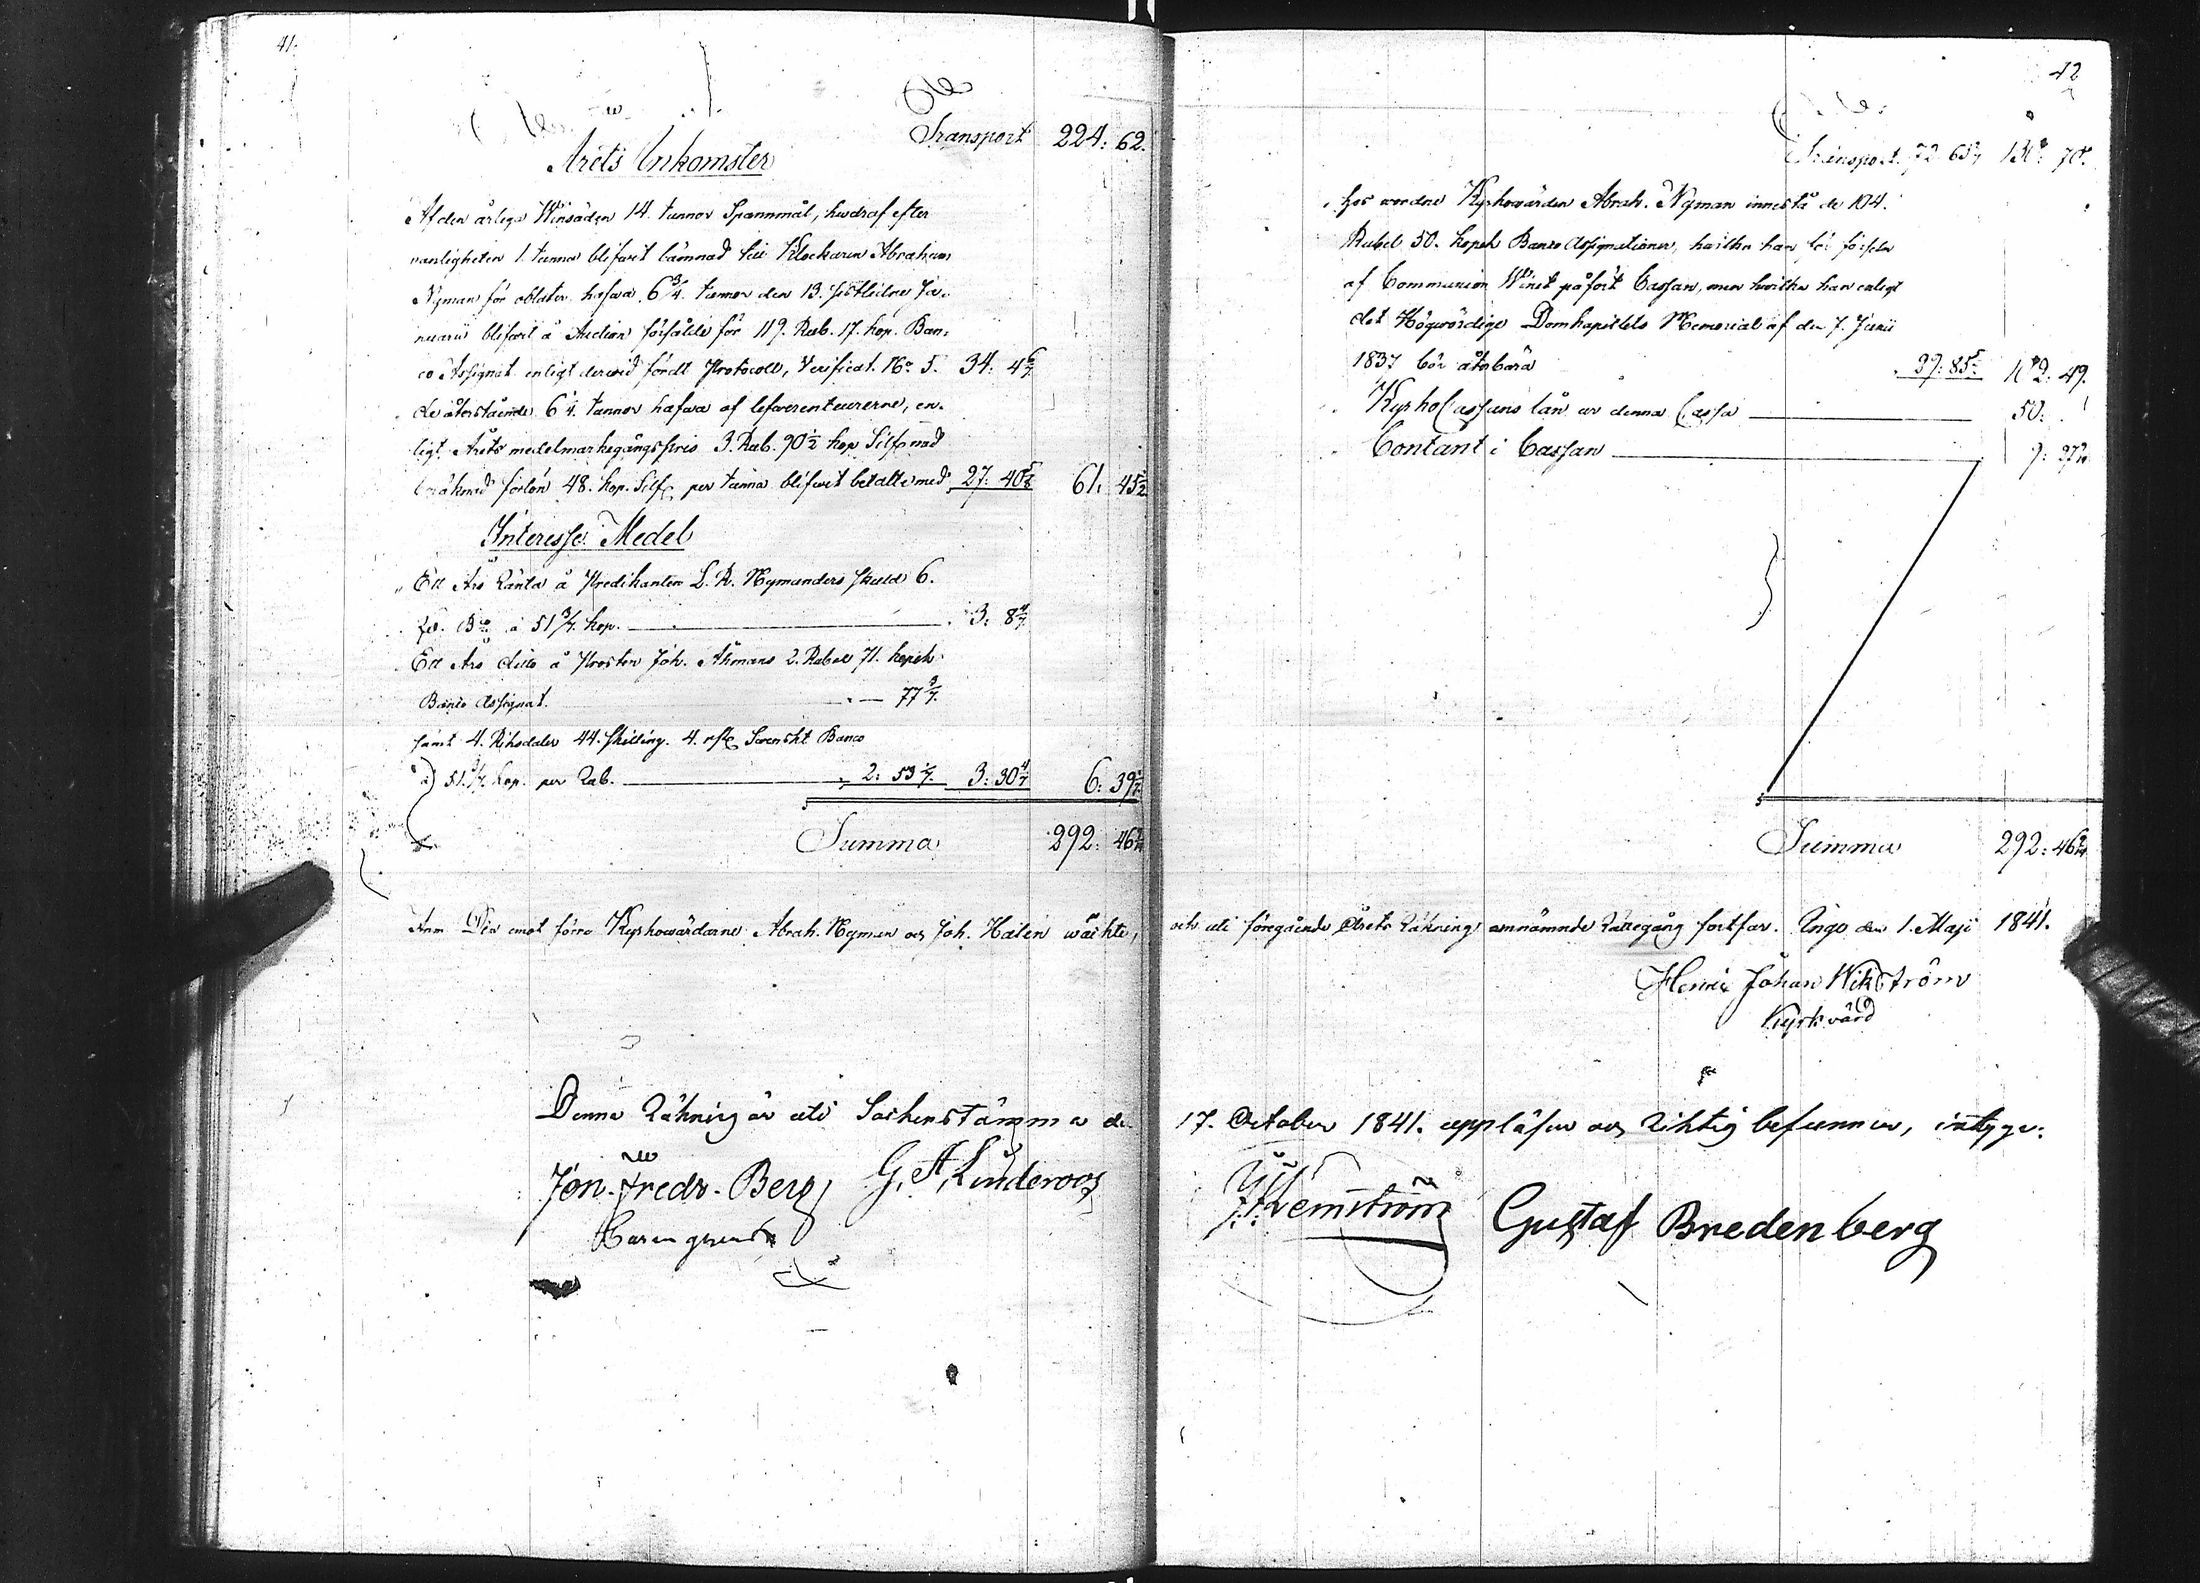 41.
Transport 224: 62.
Årets Inkomster
Af den årliga Winsäden 14. tunnor Spannmål, hvaraf efter
vanligheten 1. tunna blifvit lämnad till Klockaren Abraham
Nyman för oblater, hafva 6 3/4. tunnor den 13. sistledne Ja-
nuarii blifvit å Auction försålde för 119. Rub. 17. kop. Ban-
co Assignat. enligt dervid fördt Protocoll, Verificat. No 5. 34: 4 6/7
de återstående 6 1/4. tunnor hafva af lefverenteurerne, en-
ligt Årets medelmarkegångspris 3. Rub. 90 1/2 kop Silf. med
beräknad forlön 48. kop. Silf. per tunna blifvit betalte med 27: 40 5/8 61: 45 1/2
Interesse Medel
Ett Års Ränta å Predikanten L. R. Nymanders skuld 6.
Rd. Bco à 51 3/7. kop. 3: 8 4/7
Ett Års dito å Prosten Joh. Åhmans 2. Rubel 71. kopek
Banco Assignat. 77 3/7.
samt 4. Riksdaler 44. skilling. 4. rst. Svenskt Banco
à 51 3/7. kop. per Rub. 2: 53 1/7. 3: 30 4/7 6: 39 1/7
Summa 292: 46
Anm. Den emot förre Kyrkovärdarne Abrah. Nyman och Joh. Halin väckte,
Denna Räkning är uti Sockenstämma de
Jon. Fredr. Berg G. A. Linderoos
42
Transport. 72 65 130: 70.
hos vordne Kyrkovärden Abrah. Nyman innestå de 104.
Rubel 50. kopek Banco Assignationer, hvilka han för
af Communion Winet påfört Cassan, men hvilka han enligt
det Högvördige Domkapitlets Memorial af den 7. Junii
1837 bör återbära 39: 85 2: 49.
Kyrko Cassans lån ur denna Cassa 50:
Contant i Cassan 9: 27
Summa 292: 46
och uti föregående Årets Räkning omnämnde Rättegång fortfar. Ingo den 1. Maji 1841.
Henric Johan Wikström
Kyrkvärd
17. October 1841. uppläsen och Riktig befunnen, intyga:
Gustaf Bredenberg